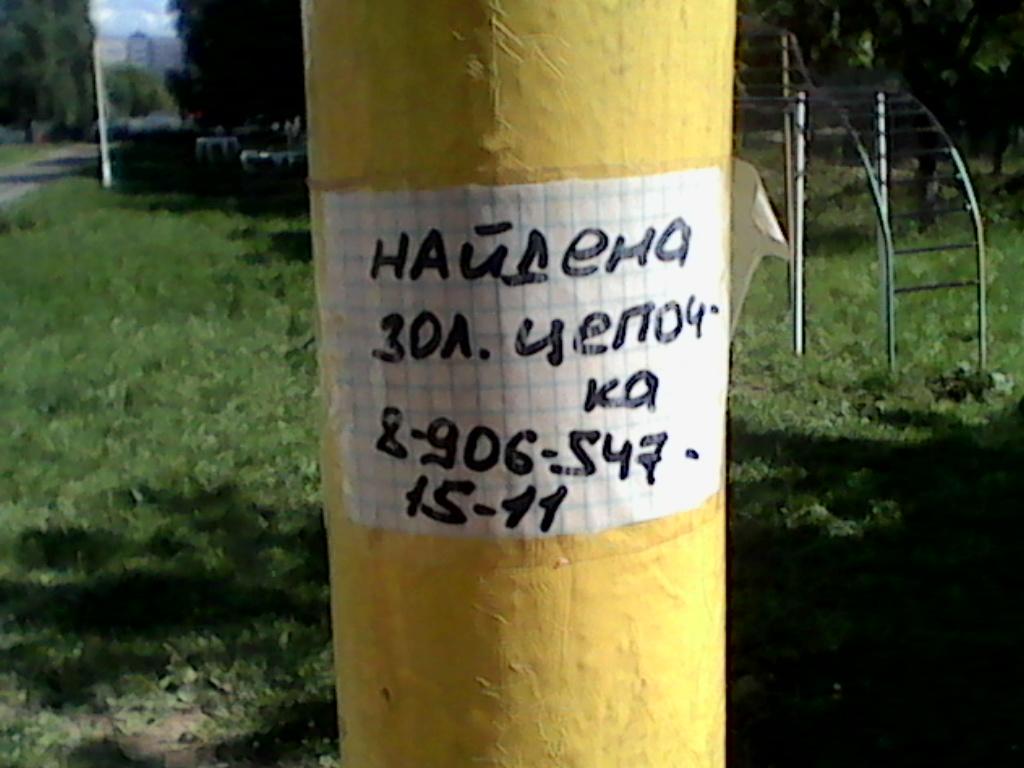 НАЙДЕНА
ЗОЛ. ЦЕПОЧ-
КА
8-906-547-
15-11